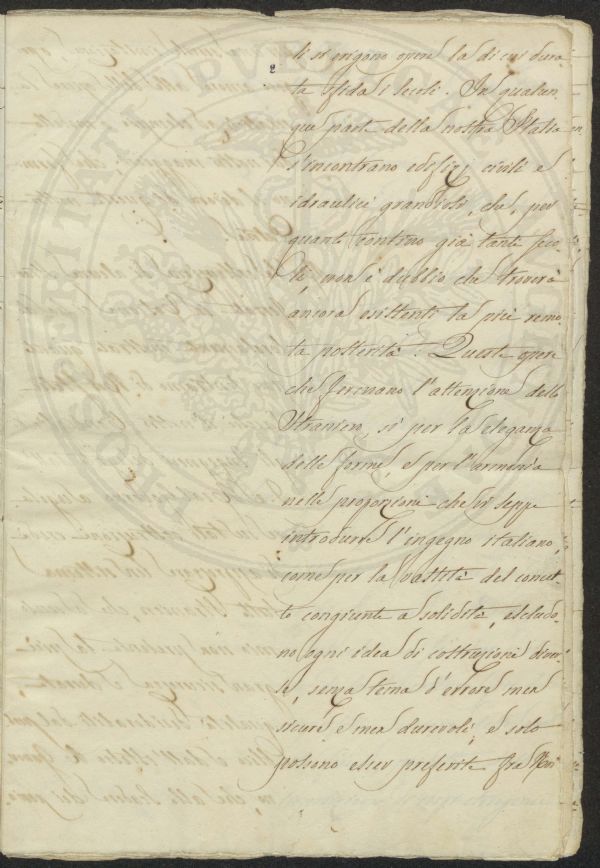 2
li si erigono opere la di cui dura-
ta sfida i secoli. In qualun-
que parte della nostra Italia
s'incontrano edifizj civili e
idraulici grandiosi, che, per
quanti contino già tanti seco-
li, non è dubbio che troverà
ancora esistenti la più remo-
ta posterità. Queste opere
che fermano l'attenzione dello
Straniero, sì per la eleganza
delle forme, e per l'armonia
nelle proporzioni che vi seppe
introdurre l'ingegno italiano,
come per la vastità del concet-
to congiunta a solidità, escludo-
no ogni idea di costruzioni diver-
se, senza tema d'errore men
sicure e men durevoli, e solo
possono esser preferite fra Noi
PROSPERITATI PVBLICAE